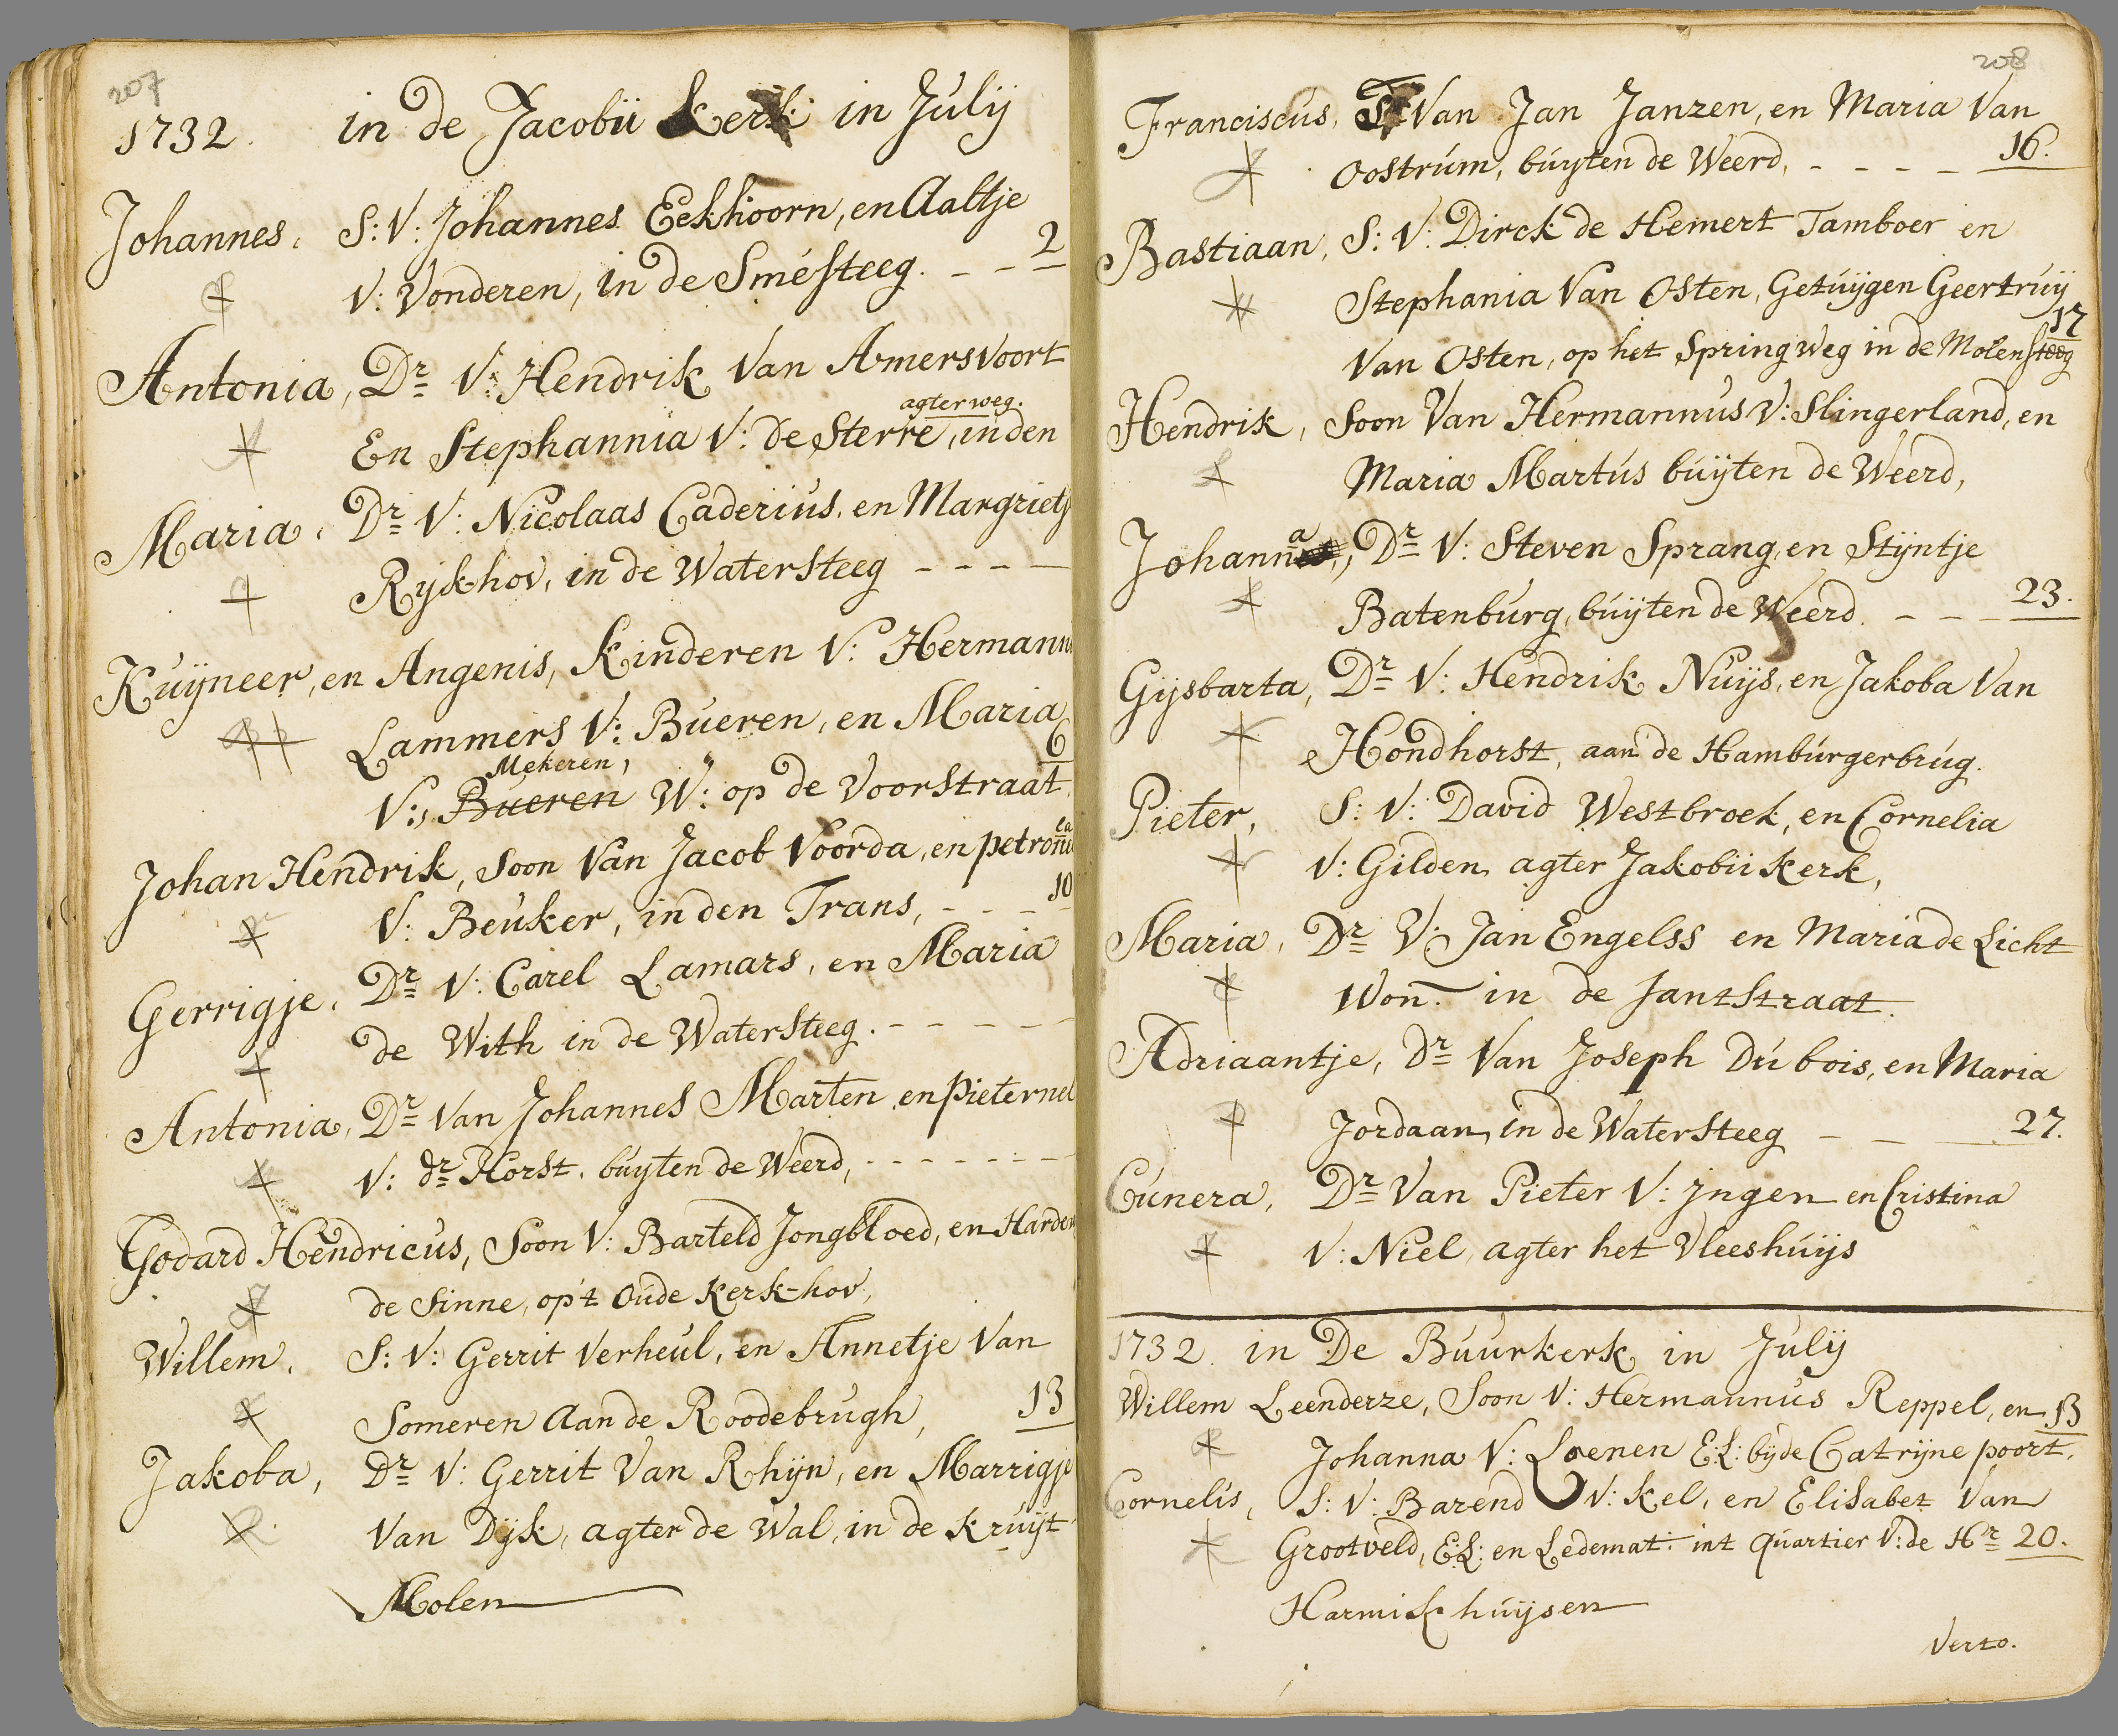 207
1732. in de Jacobii Kerk in Julij
Johannes, S: V: Johannes Eekhoorn, en Aaltje
V: Vonderen, in de Smésteeg. - - 2
Antonia, Dr V: Hendrik Van Amersvoort
agter weg.
En Stephannia V: de Sterre, in den
Maria, Dr V: Nicolaas Caderius, en Margrietj
Rijk-hov, in de Watersteeg - - - -
Kuijneer, en Angenis, Kinderen V: Hermann
Lammers V: Bueren, en Maria
Mekeren, 6
V:, Bueren W: op de Voorstraat
Johan Hendrik, Soon Van Jacob Voorda, en petron
V: Beuker, in den Trans, - - - 10
Gerrigje, Dr V: Carel Lamars, en Maria
de With in de Watersteeg. - - - - -
Antonia, Dr Van Johannes Marten, en pieternel
V: dr Horst, buyten de Weerd, - - - - - - -
Godard Hendricus, Soon V: Barteld Jongbloed, en Harden
de Sinne, op't Oude Kerk-hov,
Willem, S: V: Gerrit Verheul, en Annetje Van
Someren aan de Roodebrugh, 13
Jakoba, Dr V: Gerrit Van Rhijn, en Marrigje
Van Dijk, agter de Wal, in de Kruijt
Molen
208
Franciscus, Van Jan Janzen, en Maria Van
Oostrum, buyten de Weerd, - - - - 16.
Bastiaan, S: V: Dirck de Hemert Tamboer en
Stephania Van Osten, Getuijgen Geertruij
17
Van Osten, op het Springweg in de Molensteeg
Hendrik, Soon Van Hermannus V: Slingerland, en
Maria Martus buijten de Weerd,
Johanna, Dr V: Steven Sprang, en Stijntje
Batenburg, buijten de Weerd. - - - 23.
Gijsbarta, Dr V: Hendrik Nuijs, en Jakoba Van
Hondhorst, aan de Hamburgerbrug.
Pieter, S: V: David Westbroek, en Cornelia
V: Gilden, agter Jakobii Kerk,
Maria, Dr V: Jan Engelss en Maria de Licht
Won. in de Jantstraat.
Adriaantje, Dr Van Joseph Du bois, en Maria
Jordaan, in de Watersteeg - - - 27.
Cunera, Dr Van Pieter V: Jngen en Cristina
V: Niel, agter het Vleeshuijs
1732. in De Buurkerk in Julij
Willem Leenderze, Soon V: Hermannus Reppel, en 13
Johanna V: Loenen E:L: bij de Catrijne poort,
Cornelis, S: V: Barend V: Kel, en Elisabet Van
Grootveld, E:L: en Ledemat: int quartier V: de Hr 20.
Harmiskhuijsen
Verto.